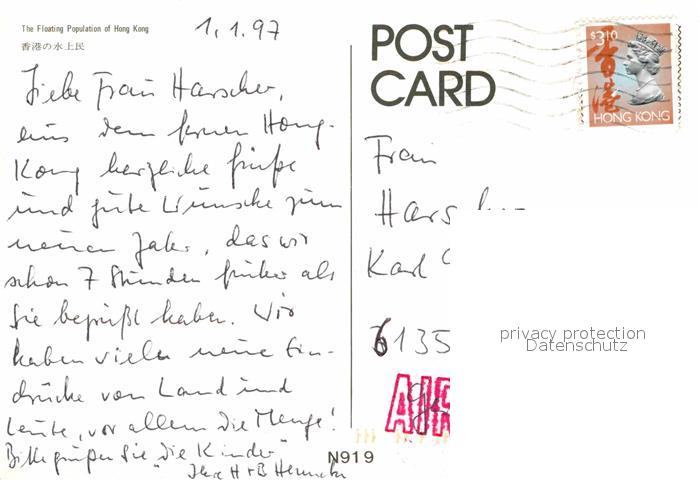 The Floating Population of Hong Kong
香港の水上民
1.1.97
Liebe Frau Harscher,
aus dem fernen Hong-
Kong herzliche Grüße
und gute Wünsche zum
neuen Jahr, das wir
schon 7 Stunden früher als
Sie begrüßt haben. Wir
haben viele neue Ein-
drücke von Land und
Leute, vor allem die Menge!
Bitte grüßen Sie "die Kinder"
Ihre H + B
N919
POST
CARD
$3.10
香港
HONG KONG
Frau
Hars
Karl
6135
privacy protection
Datenschutz
AIR